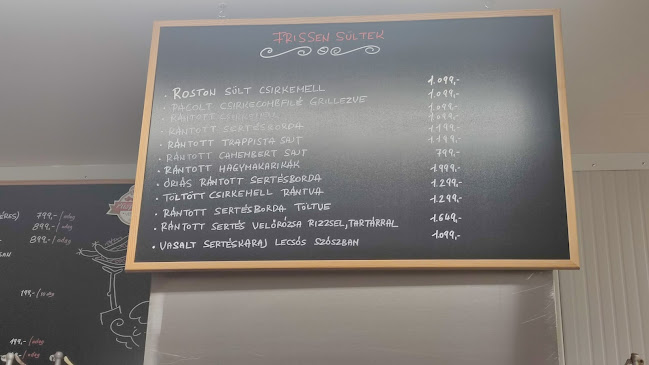 FRISSEN SÜLTEK
• ROSTON SÜLT CSIRKEMELL 1.099,-
• PÁCOLT CSIRKECOMBFILÉ GRILLEZVE 1.099,-
• RÁNTOTT CSIRKEMELL 1.099,-
• RÁNTOTT SERTÉSBORDA 1.099,-
• RÁNTOTT TRAPPISTA SAJT 1.199,-
• RÁNTOTT CAMEMBERT SAJT 1.199,-
• RÁNTOTT HAGYMAKARIKÁK 799,-
• ÓRIÁS RÁNTOTT SERTÉSBORDA 1.999,-
• TÖLTÖTT CSIRKEMELL RÁNTVA 1.299,-
• RÁNTOTT SERTÉSBORDA TÖLTVE 1.299,-
• RÁNTOTT SERTÉS VELŐRÓZSA RIZZSEL, TARTÁRRAL 1.649,-
• VASALT SERTÉSKARAJ LECSÓS SZÓSZBAN 1.099,-
799,-/adag
899,-/adag
899,-/adag
199,-/adag